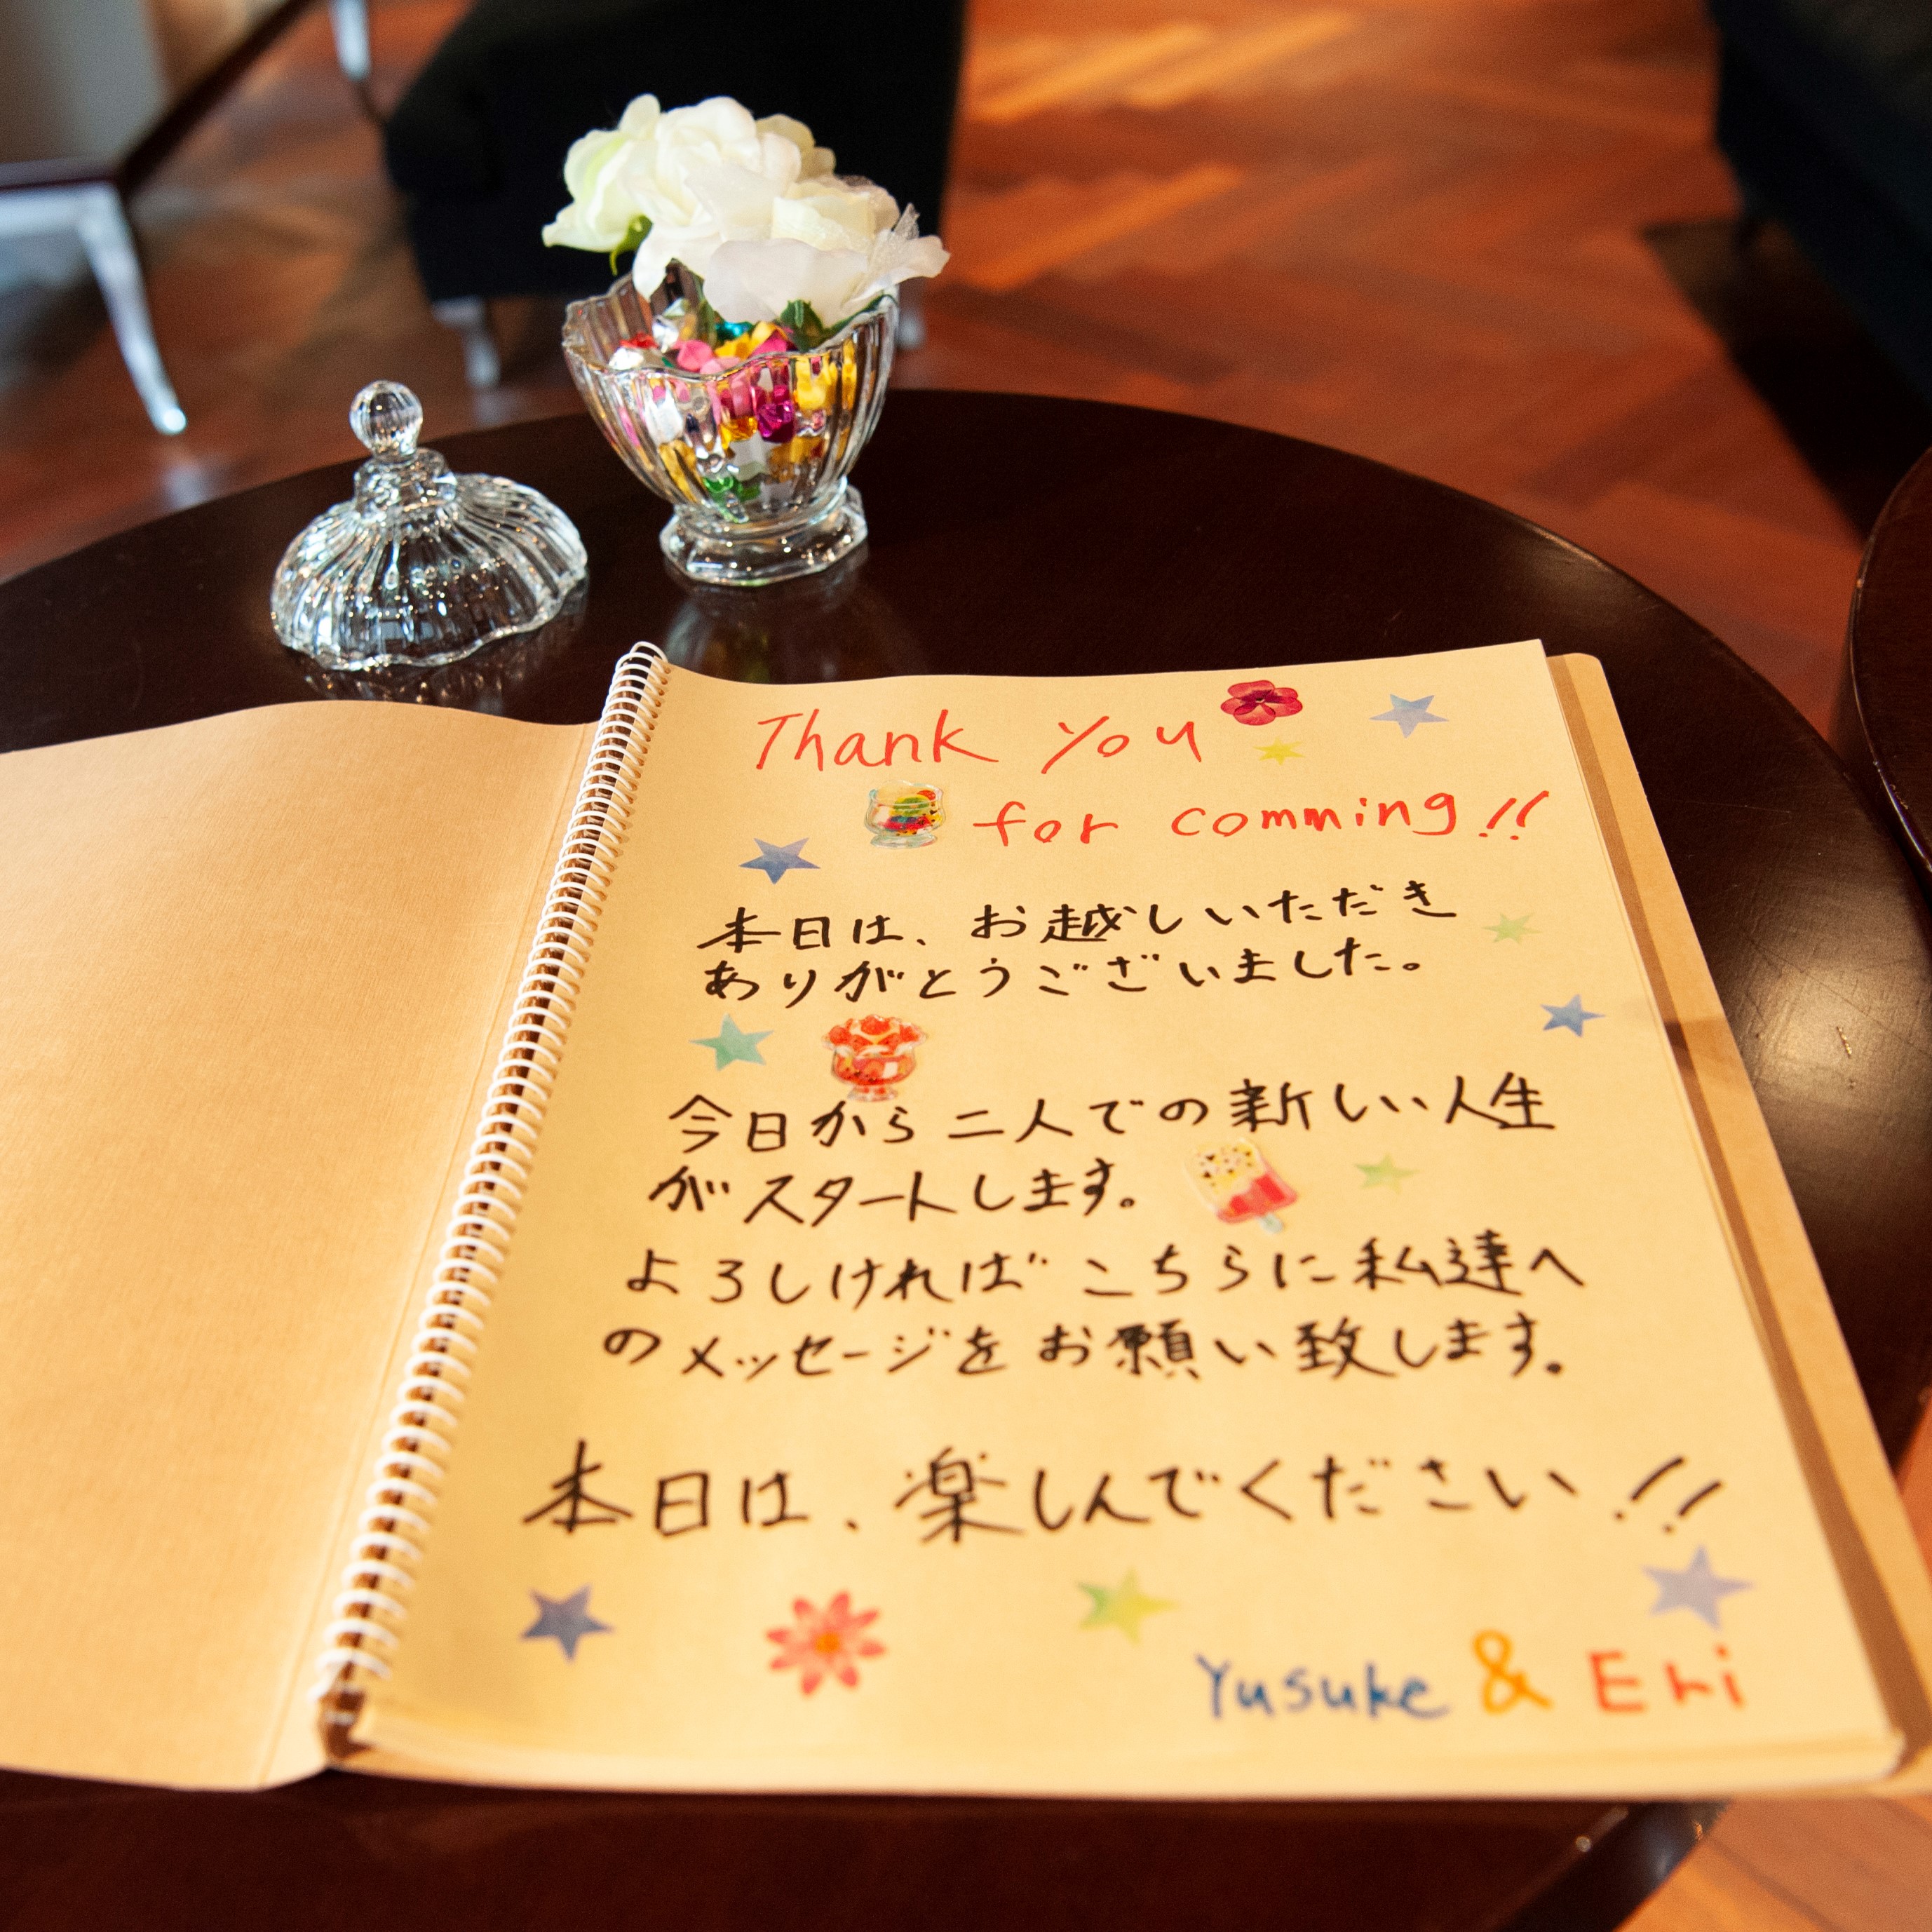 Thank you
for comming!!
本日は、お越しいただき
ありがとうございました。
今日から二人での新しい人生
がスタートします。
よろしければこちらに私達へ
のメッセージをお願い致します。
本日は、楽しんでください!!
Yusuke & Eri